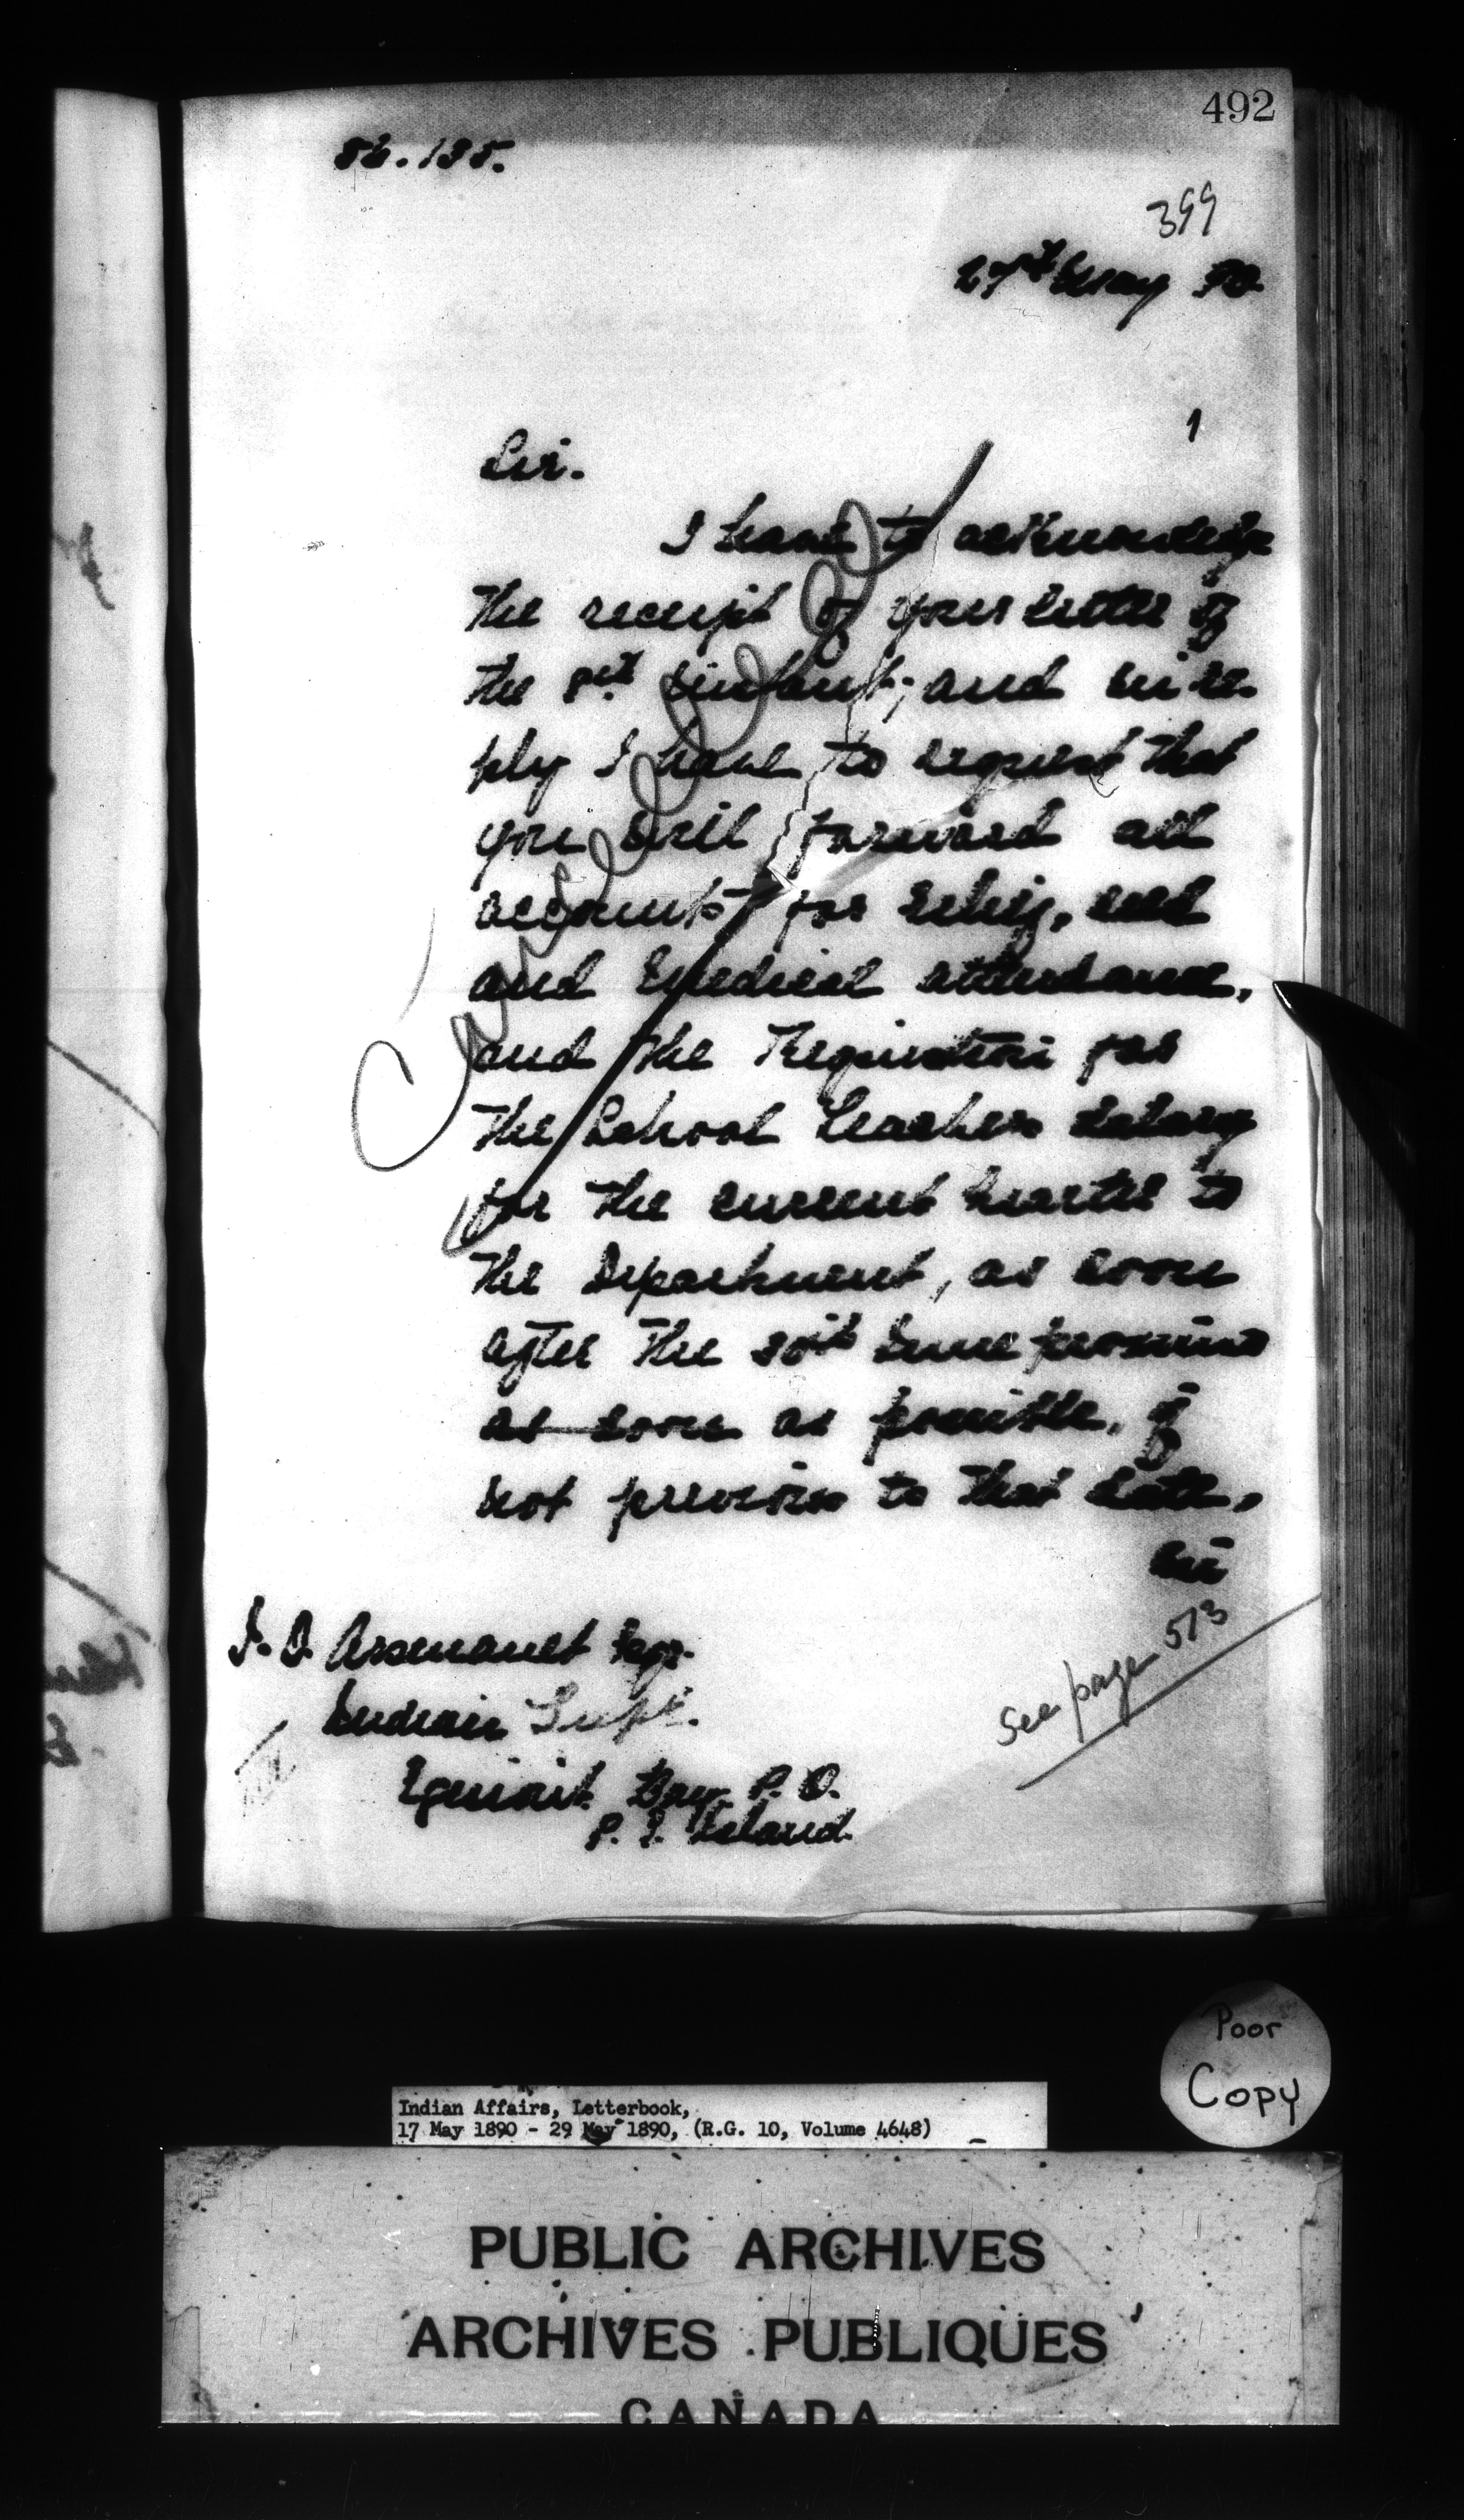 492
56.135.
399
27th May 90.
1
Sir.
I have to acknowledge
the receipt of your letter of
the instant; and in re-
ply I have to request that
you will forward all
accounts for relief, seed
and medical attendance,
and the Requisition for
the School Teachers Salary
for the current quarter to
the Department, as soon
after the 30th June proximo
as soon as possible, if
not previous to that date,
in
Cancelled
J. O. Arsenault Esqr.
Indian Supt.
Egmont Bay P. O.
P. E. Island.
See page 513
Poor
Copy
Indian Affairs, Letterbook,
17 May 1890 - 29 May 1890, (R.G. 10, Volume 4648)
PUBLIC ARCHIVES
ARCHIVES PUBLIQUES
CANADA